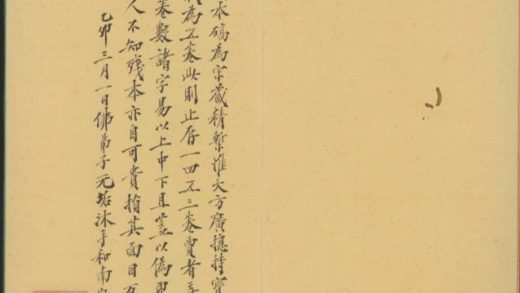 本碻為宋藏精槧惟大方廣總持寶
為五卷此則止存一四五三卷賈者
卷數諸字易以上中下且鈐以偽印
人不知殘本亦自可貴揜其面目
乙卯三月一日佛弟子元㘽沐手和南